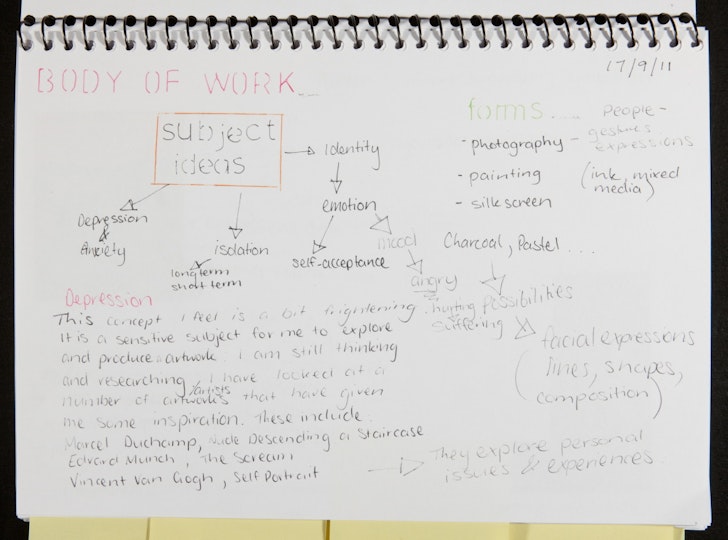 17/9/11
BODY OF WORK...
subject
ideas
Identity
emotion
mood
angry
hurting
suffering
self-acceptance
isolation
longterm
short term
Depression
&
Anxiety
forms.....
- photography -
People -
gestures
expressions
- painting
(ink, mixed
media)
- silkscreen
Charcoal, Pastel...
possibilities
facial expressions
(lines, shapes,
composition)
Depression
This concept I feel is a bit frightening.
It is a sensitive subject for me to explore
and produce artwork. I am still thinking
and researching, I have looked at a
number of artworks /artists that have given
me some inspiration. These include:
Marcel Duchamp, Nude Descending a Staircase
Edvard Munch, The Scream
Vincent Van Gogh, Self Portrait
They explore personal
issues & experiences.